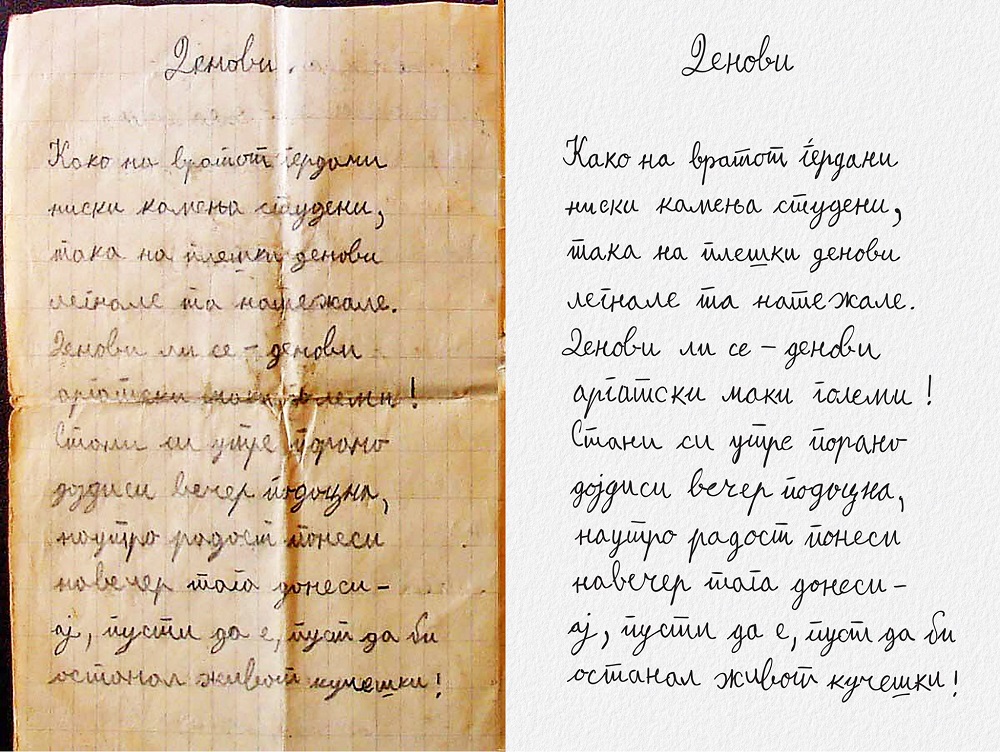 Денови
Како на вратот ѓердани
ниски камења студени,
така на плешки денови
легнале та натежале.
Денови ли се – денови
аргатски маки големи!
Стани си утре порано
дојдиси вечер подоцна,
наутро радост понеси
навечер тага донеси –
ај, пусти да е, пуст да би
останал живот кучешки!
Денови
Како на вратот ѓердани
ниски камења студени,
така на плешки денови
легнале та натежале.
Денови ли се – денови
аргатски маки големи !
Стани си утре порано
дојдиси вечер подоцна,
наутро радост понеси
навечер тага донеси –
ај, пусти да е, пуст да би
останал живот кучешки!